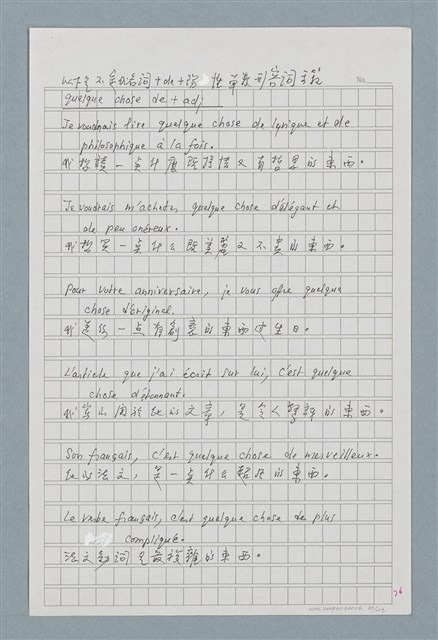 以下是不定代名詞 + de + 陽性單數形容詞
No.
quelque chose de + adj
Je voudrais lire quelque chose de lyrique et de
philosophique à la fois.
我想讀一点什麼既抒情又有哲理的東西。
Je voudrais m'acheter quelque chose d'élégant et
de peu onéreux.
我想買一点什么既美麗又不貴的東西。
Pour votre anniversaire, je vous offre quelque
chose d'original.
我送你一点有創意的東西过生日。
L'article que j'ai écrit sur lui, c'est quelque
chose d'étonnant.
我寫的關於他的文章，是令人驚訝的東西。
Son français, c'est quelque chose de merveilleux.
他的法文，是一点什么超凡的東西。
Le verbe français, c'est quelque chose de plus
compliqué.
法文動詞是最複雜的東西。
76